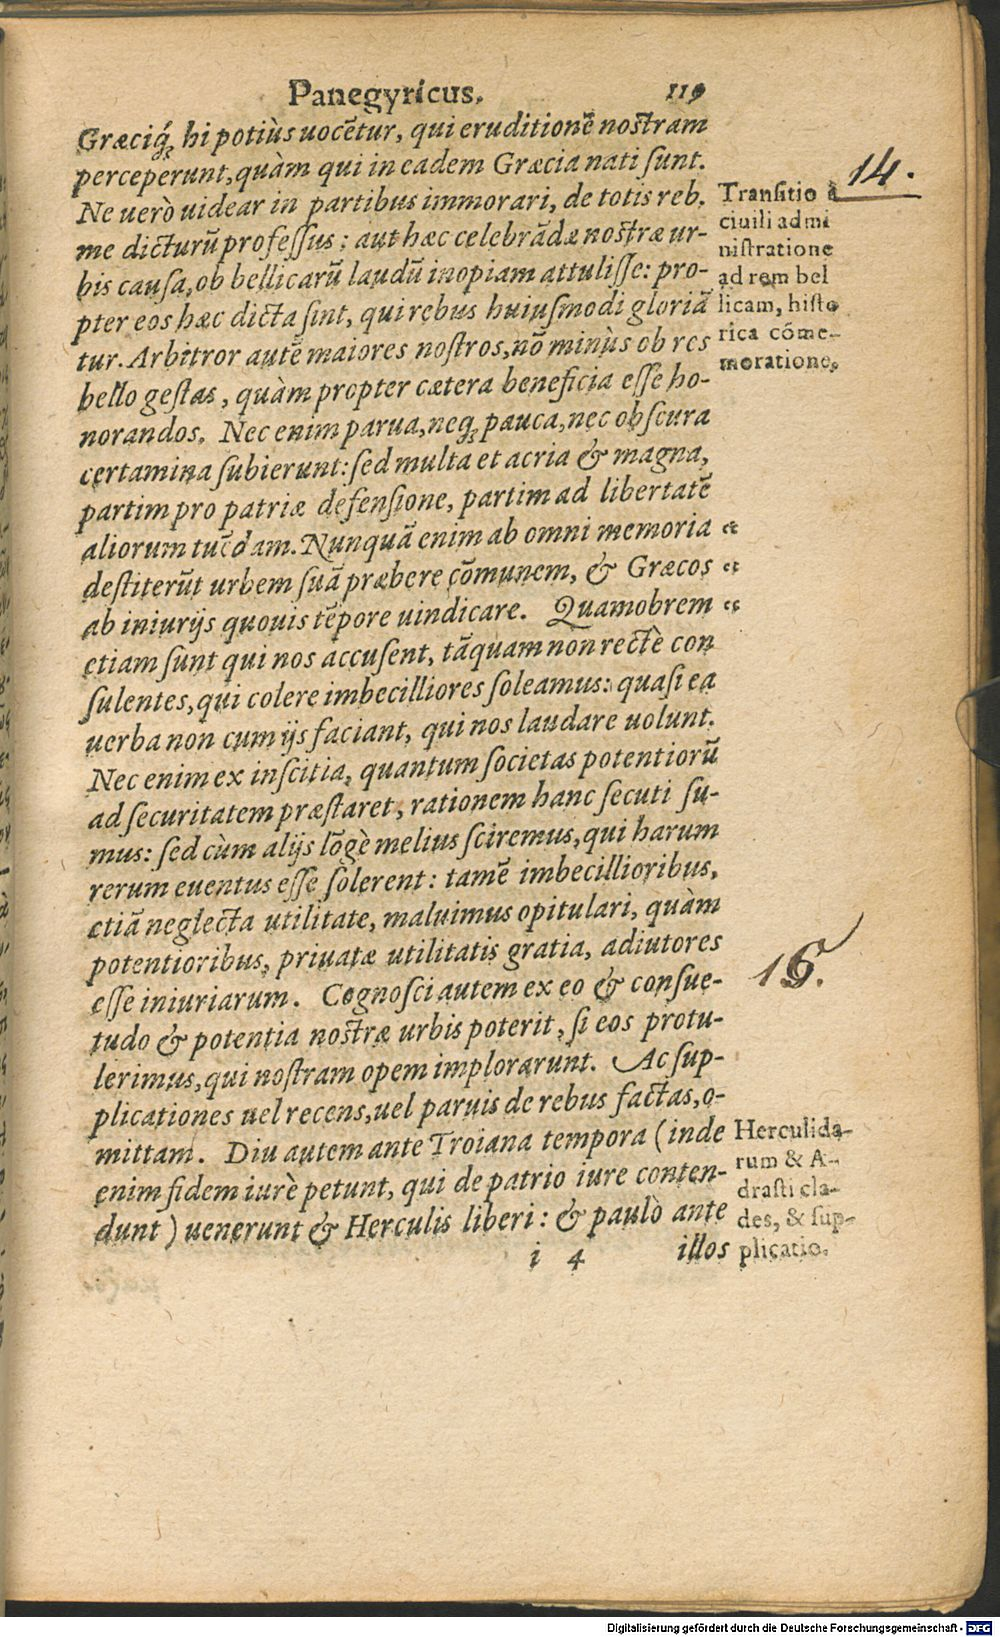 Panegyricus. 119
Græciq́ꝫ hi potiùs uocẽtur, qui eruditionẽ nostram
perceperunt, quàm qui in eadem Græcia nati sunt.
Ne uerò uidear in partibus immorari, de totis reb.
me dicturũ professus: aut hæc celebrãdæ nostræ ur-
bis causa, ob bellicarũ laudũ inopiam attulisse: pro-
pter eos hæc dicta sint, qui rebus huiusmodi gloriã
tur. Arbitror autẽ maiores nostros, nõ minùs ob res
bello gestas, quàm propter cætera beneficia esse ho-
norandos. Nec enim parua, neqꝫ pauca, nec obscura
certamina subierunt: sed multa et acria & magna,
partim pro patriæ defensione, partim ad libertatẽ
aliorum tuẽdam. Nunquã enim ab omni memoria
destiterũt urbem suã præbere cõmunem, & Græcos
ab iniurijs quouis tẽpore uindicare. Quamobrem
etiam sunt qui nos accusent, tãquam non rectè con
sulentes, qui colere imbecilliores soleamus: quasi ea
uerba non cum ijs faciant, qui nos laudare uolunt.
Nec enim ex inscitia, quantum societas potentiorũ
ad securitatem præstaret, rationem hanc secuti su-
mus: sed cùm alijs lõgè melius sciremus, qui harum
rerum euentus esse solerent: tamẽ imbecillioribus,
etiã neglecta utilitate, maluimus opitulari, quàm
potentioribus, priuatæ utilitatis gratia, adiutores
esse iniuriarum. Cognosci autem ex eo & consue-
tudo & potentia nostræ urbis poterit, si eos protu-
lerimus, qui nostram opem implorarunt. Ac sup-
plicationes uel recens, uel paruis de rebus factas, o-
mittam. Diu autem ante Troiana tempora (inde
enim fidem iurè petunt, qui de patrio iure conten-
dunt) uenerunt & Herculis liberi: & paulò ante
i 4 illos
14.
Transitio à
ciuili admi
nistratione
ad rem bel
licam, histo
rica cõme-
moratione.
“
“
“
16.
Herculida-
rum & A-
drasti cla-
des, & sup-
plicatio.
Digitalisierung gefördert durch die Deutsche Forschungsgemeinschaft - DFG